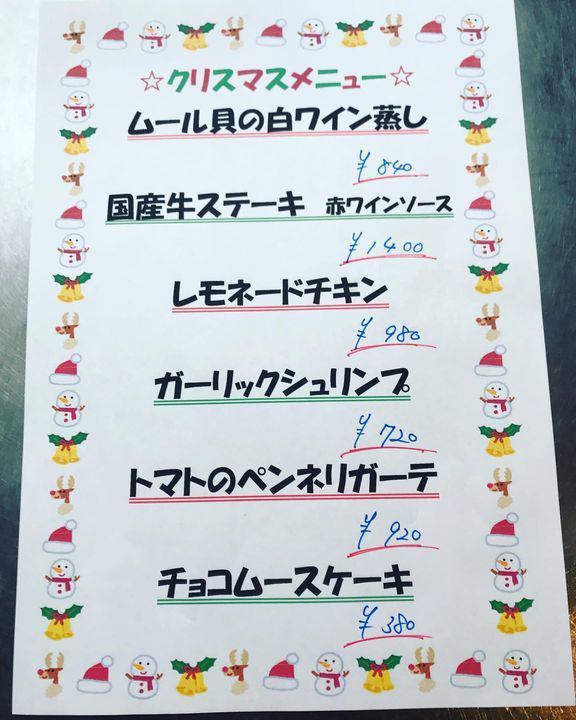 ☆クリスマスメニュー☆
ムール貝の白ワイン蒸し
¥840
国産牛ステーキ 赤ワインソース
¥1400
レモネードチキン
¥980
ガーリックシュリンプ
¥720
トマトのペンネリガーテ
¥920
チョコムースケーキ
¥380